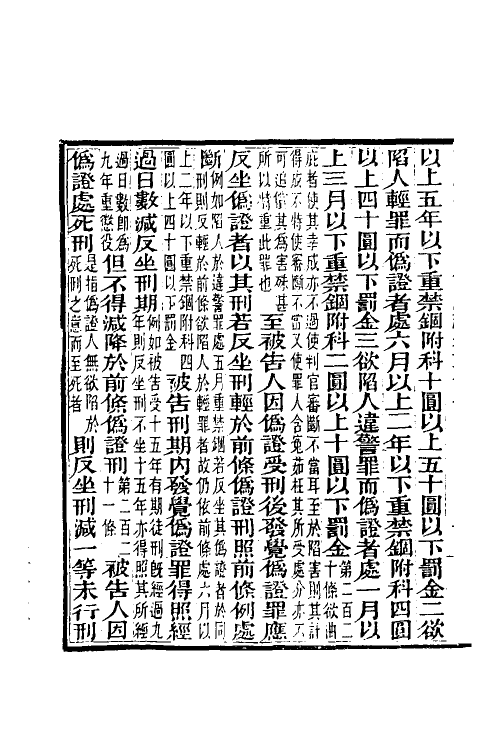 以上五年以下重禁錮附科十圓以上五十圓以下罰金二欲
陷人輕罪而僞證者處六月以上二年以下重禁錮附科四圓
以上四十圓以下罰金三欲陷人違警罪而僞證者處一月以
上三月以下重禁錮附科二圓以上十圓以下罰金第二百二
十條欲曲
庇者使其幸成亦不過使判官審斷不當耳至於陷害則其計
得成不特使審斷不當又使罪人含冤茹枉其所受處分亦不
可追償其爲害殊甚
所以特重此罪也
至被告人因僞證受刑後發覺僞證罪應
反坐僞證者以其刑若反坐刑輕於前條僞證刑照前條例處
斷例如陷人於違警罪處五月重禁錮若反坐其僞證者於同
刑則反輕於前條欲陷人於輕罪者故仍依前條處六月以
上二年以下重禁錮附科四
圓以上四十圓以下罰金
被告刑期内發覺僞證罪得照經
過日數減反坐刑期例如被告受十五年有期徒刑既經過九
年則反坐刑不坐十五年亦得照其所經
過日數即爲
九年重懲役
但不得減降於前條僞證刑第二百二
十一條
被告人因
僞證處死刑是指僞證人無欲陷於
死刑之意而至死者
則反坐刑減一等未行刑